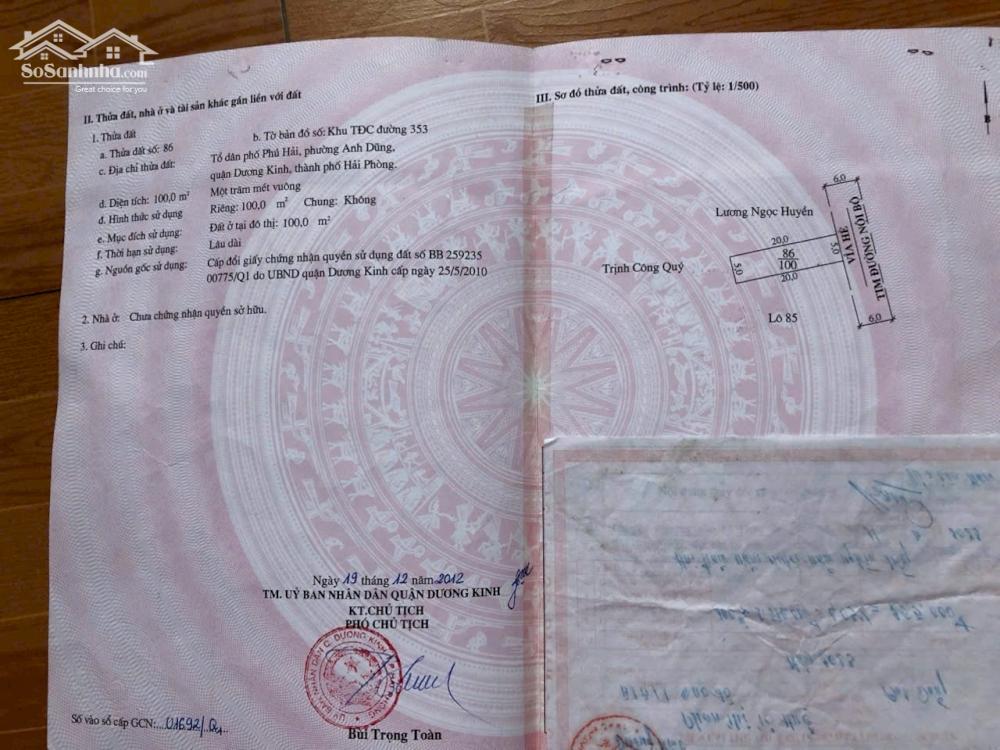 SoSanhnha.com
Great choice for you
II. Thửa đất, nhà ở và tài sản khác gắn liền với đất
1. Thửa đất
a. Thửa đất số: 86
b. Tờ bản đồ số: Khu TĐC đường 353
c. Địa chỉ thửa đất: Tổ dân phố Phú Hải, phường Anh Dũng,
quận Dương Kinh, thành phố Hải Phòng.
d. Diện tích: 100,0 m² Một trăm mét vuông
đ. Hình thức sử dụng Riêng: 100,0 m² Chung: Không
e. Mục đích sử dụng: Đất ở tại đô thị: 100,0 m²
f. Thời hạn sử dụng: Lâu dài
g. Nguồn gốc sử dụng: Cấp đổi giấy chứng nhận quyền sử dụng đất số BB 259235
00775/Q1 do UBND quận Dương Kinh cấp ngày 25/5/2010
2. Nhà ở: Chưa chứng nhận quyền sở hữu.
3. Ghi chú:
Ngày 19 tháng 12 năm 2012
TM. UỶ BAN NHÂN DÂN QUẬN DƯƠNG KINH
KT.CHỦ TỊCH
PHÓ CHỦ TỊCH
Bùi Trọng Toàn
Số vào sổ cấp GCN: 01692/
III. Sơ đồ thửa đất, công trình: (Tỷ lệ: 1/500)
B
6,0
Lương Ngọc Huyền
20,0
5,0
86
100
5,0
20,0
VỈA HÈ
TIM ĐƯỜNG NỘI BỘ
Trịnh Công Quý
Lô 85
6,0